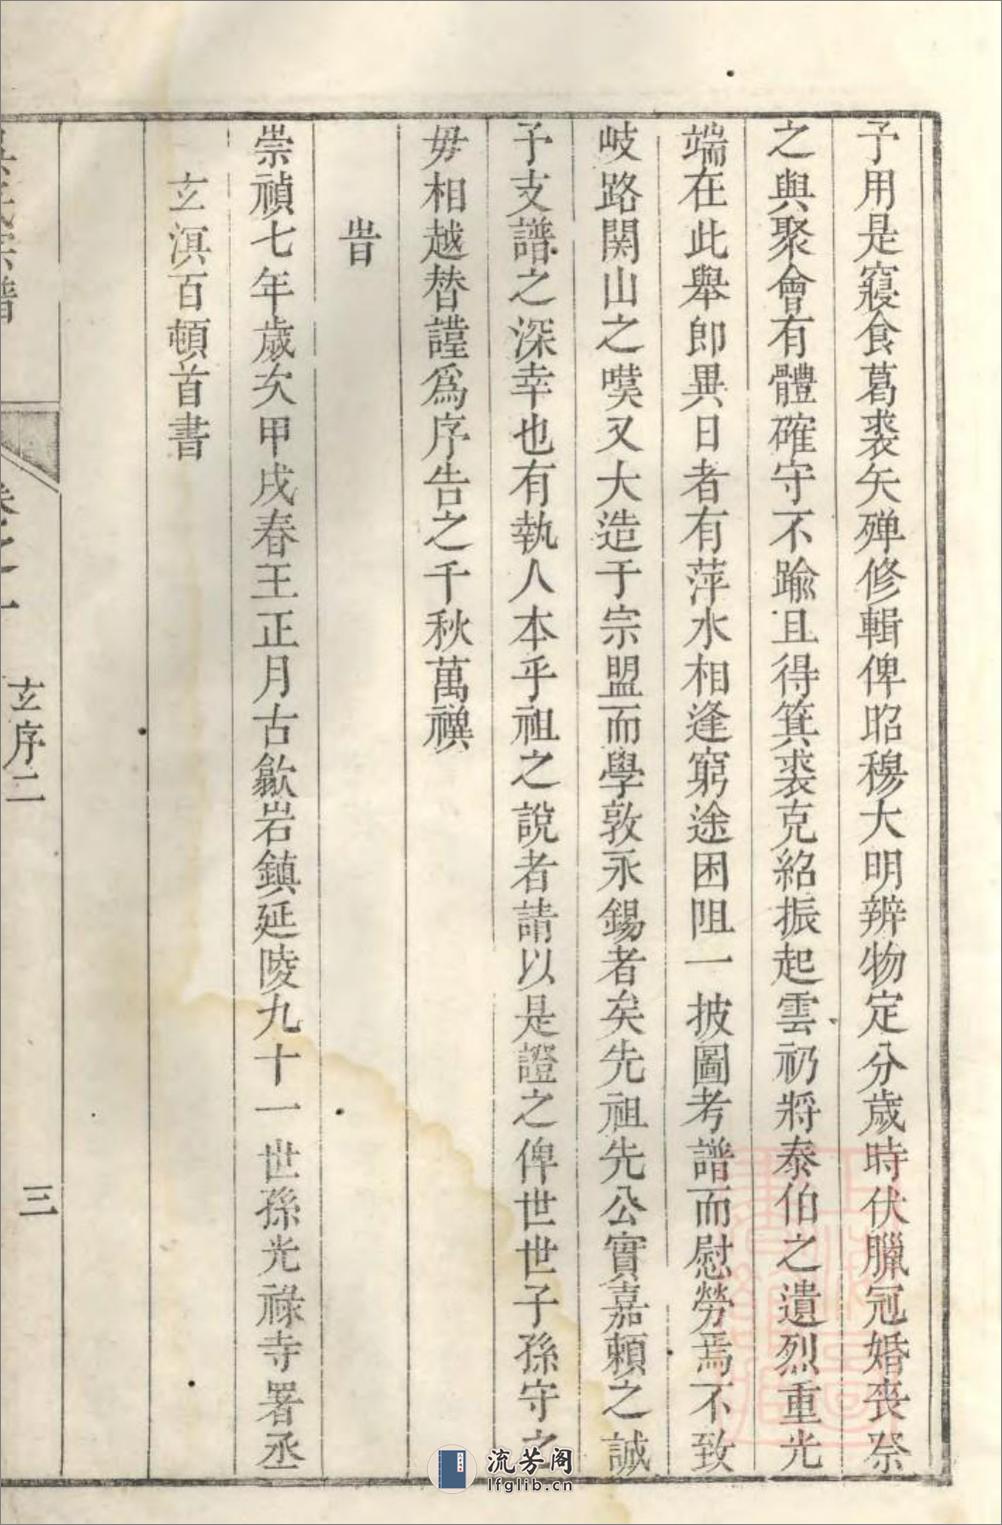 予用是寢食葛裘矢殫修輯俾昭穆大明辨物定分歲時伏臘冠婚喪祭
之與聚會有體確守不踰且得箕裘克紹振起雲礽將泰伯之遺烈重光
端在此舉即異日者有萍水相逢窮途困阻一披圖考譜而慰勞焉不致
岐路関山之嘆又大造于宗盟而學敦永錫者矣先祖先公實嘉頼之誠
予支譜之深幸也有執人本乎祖之說者請以是證之俾世世子孫守之
毋相越替謹爲序告之千秋萬禩
旹
崇禎七年歲次甲戌春王正月古歙岩鎮延陵九十一世孫光祿寺署丞
玄溟百頓首書
卷之一
玄序二
三
流芳阁
lfglib.cn